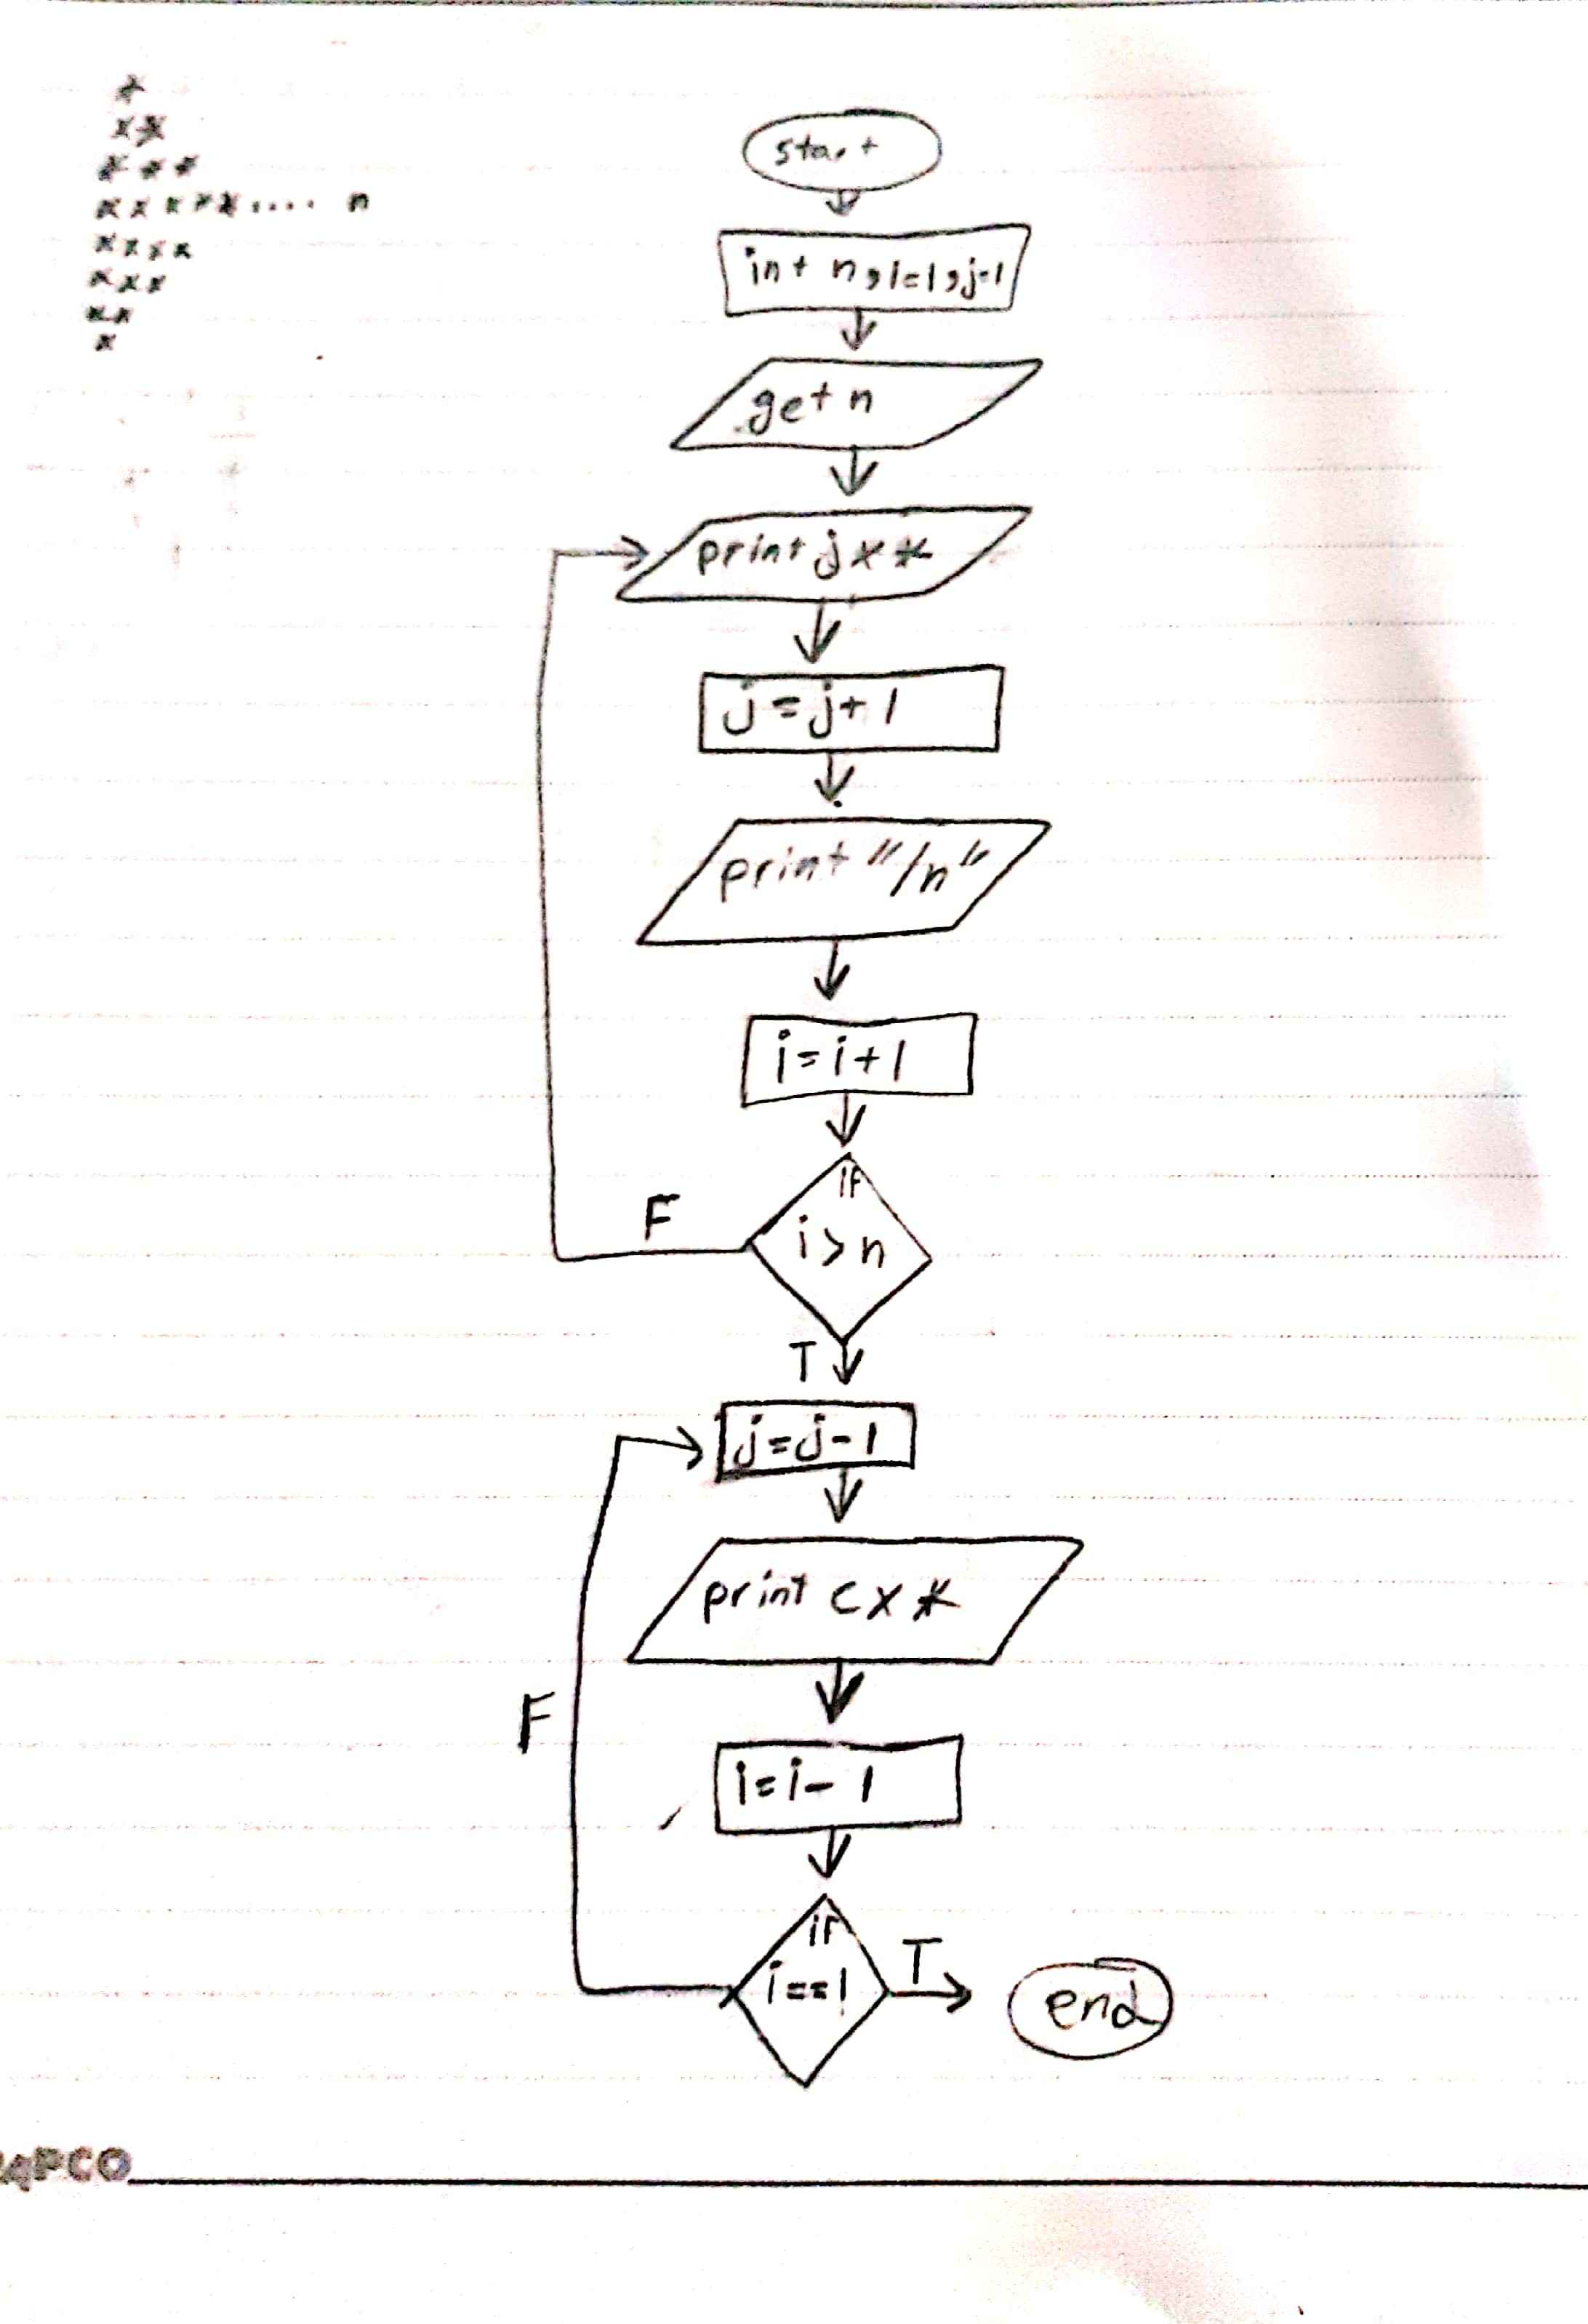 *
**
***
*****.... n
****
***
**
*
start
int n, i=1, j=1
get n
print j x *
j = j + 1
print "/n"
i = i + 1
if
i > n
F
T
j = j - 1
print c x *
i = i - 1
F
if
i == 1
T
end